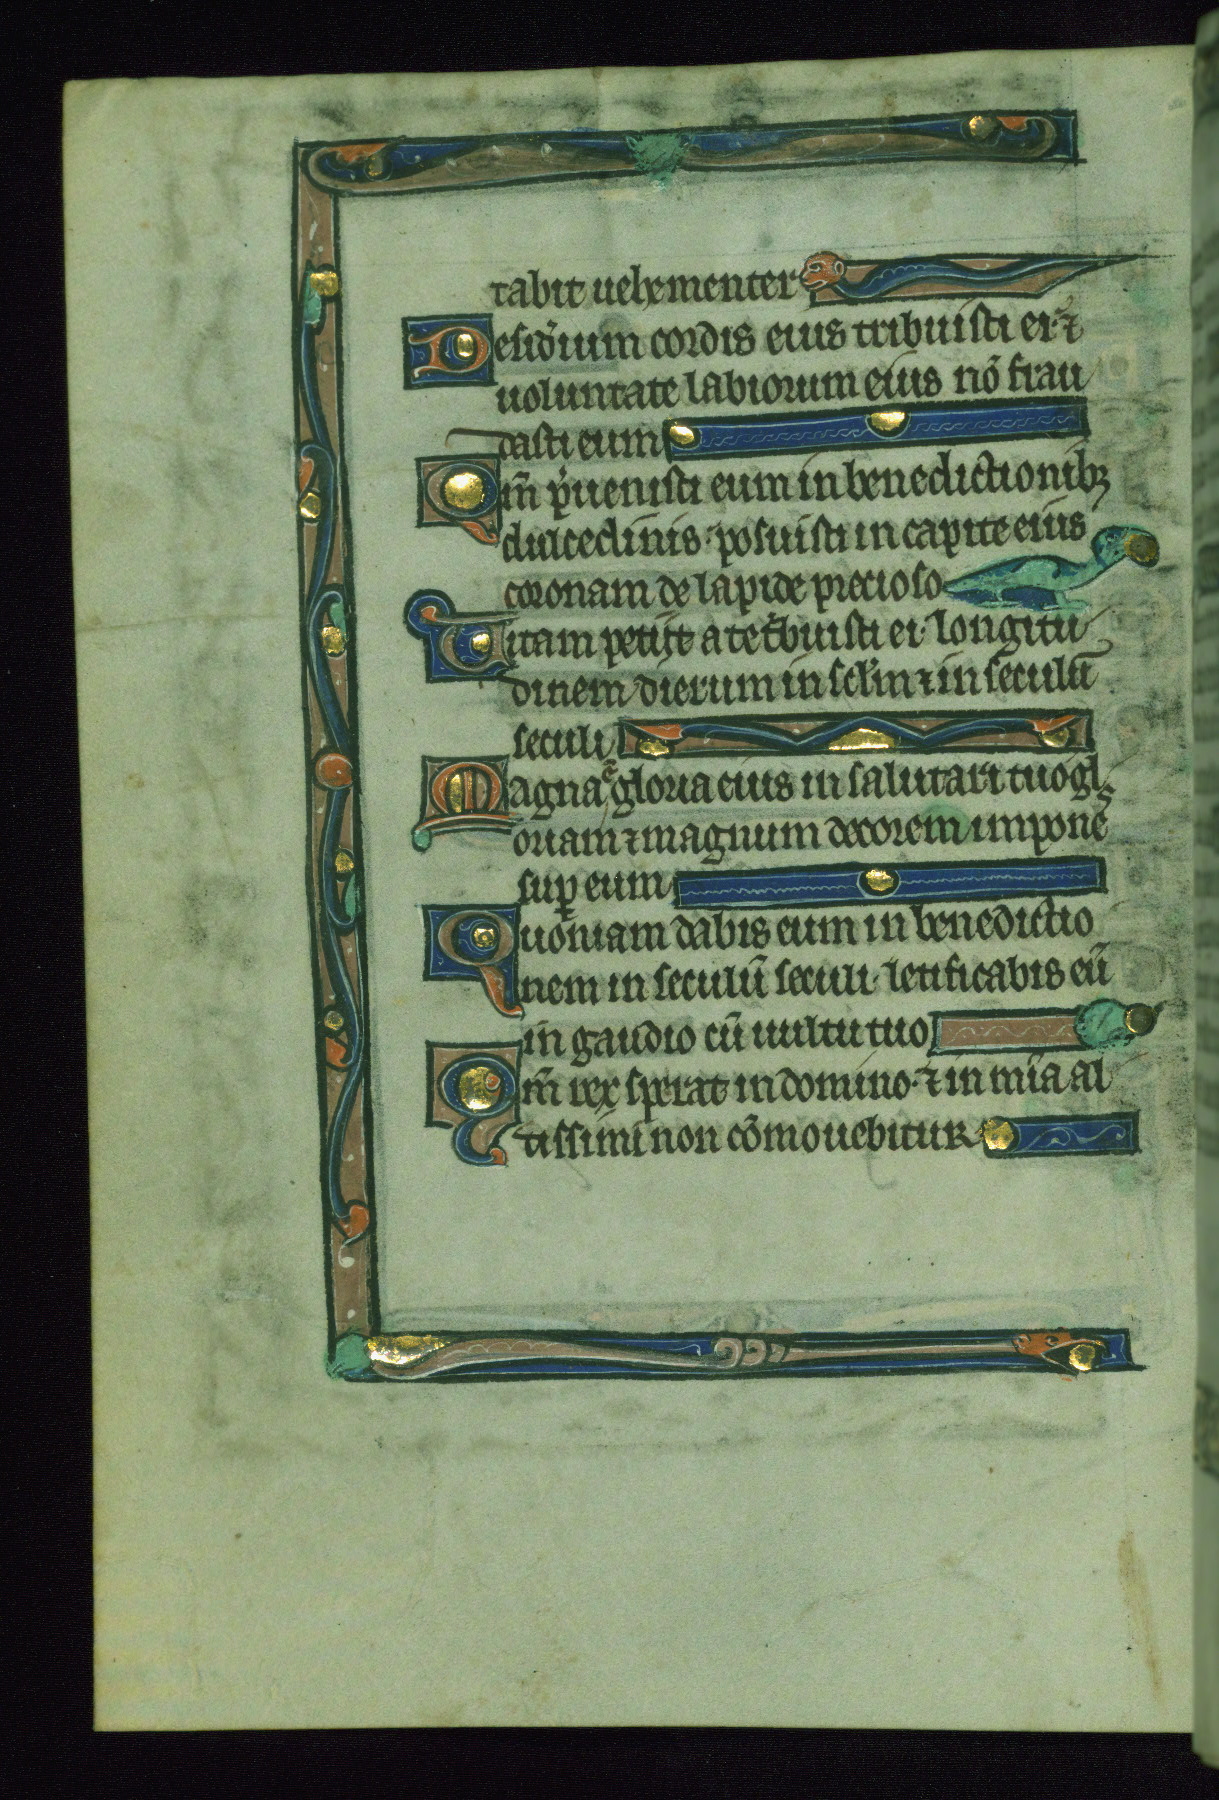 tabit uehementer
Desid̾ium cordis eius tribuisti ei· ⁊
uoluntate labiorum eius nō frau
dasti eum
Qm̄ p̾uenisti eum in benedictionibꝫ
dulcedinis· posuisti in capite eius
coronam de lapide precioso
Uitam petijt a te t̾buisti ei· longitu
dinem dierum in sc̄l̾m ⁊ in seculū
seculi
Magna ē gloria eius in salutari tuo gl
oriam ⁊ magnum decorem impone
suꝑ eum
Quoniam dabis eum in benedictio
nem in seculū seculi· letificabis eū
in gaudio cū uultu tuo
Qm̄ rex sperat in domino· ⁊ in mīa al
tissimi non cōmouebitur